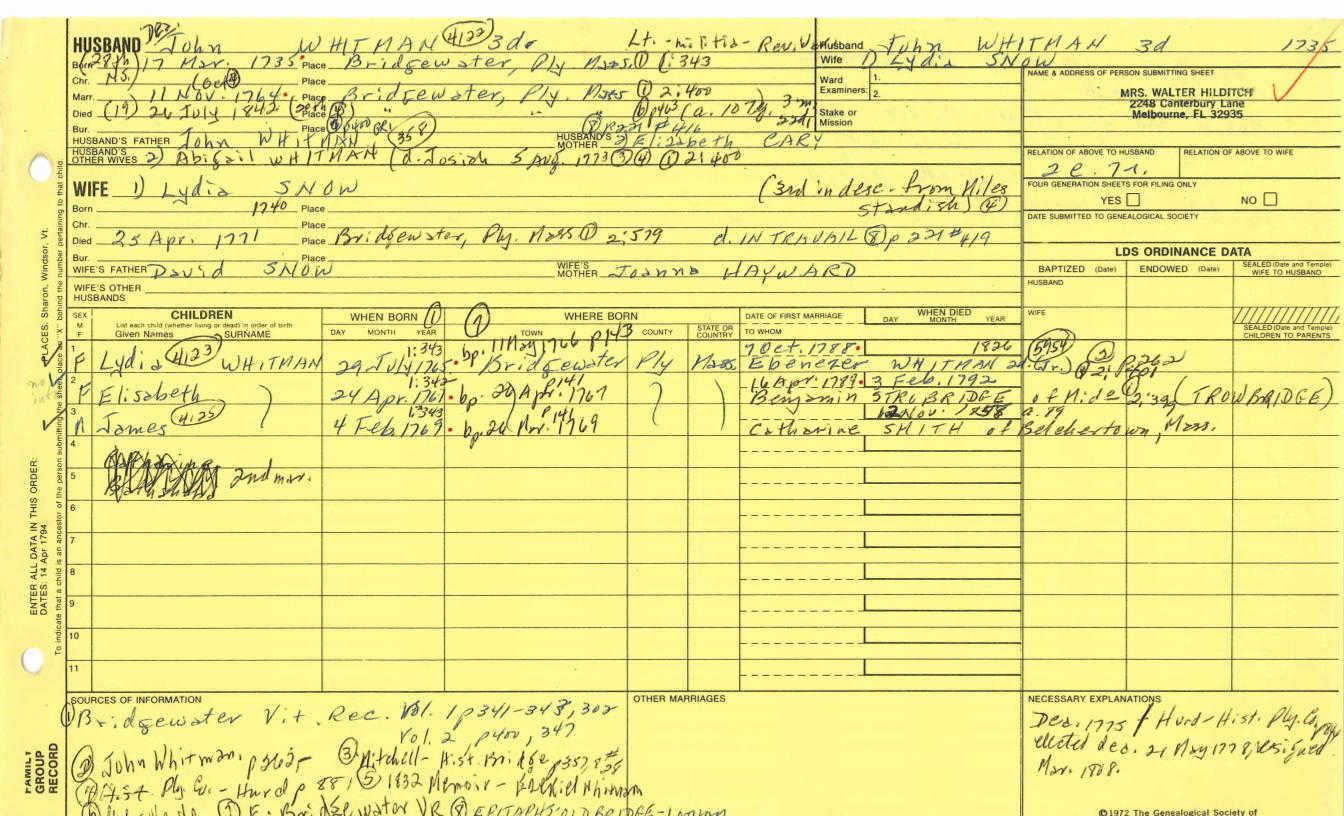 HUSBAND John WHITMAN 4122 3d Lt. - militia - Rev. War
Husband John WHITMAN 3d 1735
Wife 1) Lydia SNOW
Born (28th) 17 Mar. 1735 Place Bridgewater, Ply Mass. ① 1:343
Chr. N.S.) Place
Marr. 11 Nov. 1764 Place Bridgewater, Ply. Mass ① 2:400
Died (19) 26 July 1842 Place " " "
Bur. Place
Ward Examiners: 1.
2.
Stake or Mission
HUSBAND'S FATHER John WHITMAN
HUSBAND'S MOTHER 2) Elizabeth CARY
HUSBAND'S OTHER WIVES 2) Abigail WHITMAN (d. Josiah 5 Aug. 1773 ③ ④ ① 2:400
NAME & ADDRESS OF PERSON SUBMITTING SHEET
MRS. WALTER HILDITCH
2248 Canterbury Lane
Melbourne, FL 32935
RELATION OF ABOVE TO HUSBAND RELATION OF ABOVE TO WIFE
FOUR GENERATION SHEETS FOR FILING ONLY
YES NO
DATE SUBMITTED TO GENEALOGICAL SOCIETY
WIFE 1) Lydia SNOW (3rd in desc. from Miles Standish) ④
Born 1740 Place
Chr. Place
Died 25 Apr. 1771 Place Bridgewater, Ply. Mass ① 2:579 d. IN TRAVAIL ⑧ p 221 #419
Bur. Place
WIFE'S FATHER David SNOW
WIFE'S MOTHER Joanna HAYWARD
WIFE'S OTHER HUSBANDS
LDS ORDINANCE DATA
BAPTIZED (Date) ENDOWED (Date) SEALED (Date and Temple) WIFE TO HUSBAND
HUSBAND
WIFE
SEALED (Date and Temple) CHILDREN TO PARENTS
SEX M F
CHILDREN
List each child (whether living or dead) in order of birth
Given Names SURNAME
WHEN BORN ①
DAY MONTH YEAR
⑦ WHERE BORN
TOWN COUNTY STATE OR COUNTRY
DATE OF FIRST MARRIAGE
TO WHOM
WHEN DIED
DAY MONTH YEAR
1 F Lydia 4123 WHITMAN 1:343 29 July 1765 bp. 11 May 1766 p143 Bridgewater Ply Mass. 7 Oct. 1788 1826 Ebenezer WHITMAN
2 F Elisabeth 1:342 24 Apr. 1767 bp. 26 Apr. 1767 p141 16 Apr. 1789 3 Feb. 1792 Benjamin STROBRIDGE of Mid (TROWBRIDGE)
3 M James 1:343 4 Feb 1769 bp. 26 Mar. 1769 12 Nov. a. 79 Catharine SMITH of Belchertown, Mass.
4
5 2nd mar.
6
7
8
9
10
11
SOURCES OF INFORMATION
① Bridgewater Vit. Rec. Vol. 1 p341-343, 302
Vol. 2 p400, 347
② John Whitman, ③ Mitchell - Hist. Bridge p357, #28
④ Hist. Ply Co. - Hurd p 881 ⑤ 1832 Memoir - Ezekiel Whitman
⑦ E. Bridgewater VR ⑧ EPITAPHS OLD BRIDGE - Latham
OTHER MARRIAGES
NECESSARY EXPLANATIONS
Dea. 1775 Hurd - Hist. Ply. Co.
elected dea. 21 May 1778, resigned
Mar. 1808.
©1972 The Genealogical Society of
ENTER ALL DATA IN THIS ORDER:
DATES: 14 Apr 1794
PLACES: Sharon, Windsor, Vt.
To indicate that a child is an ancestor of the person submitting the sheet, place an "X" behind the number pertaining to that child.
FAMILY GROUP RECORD